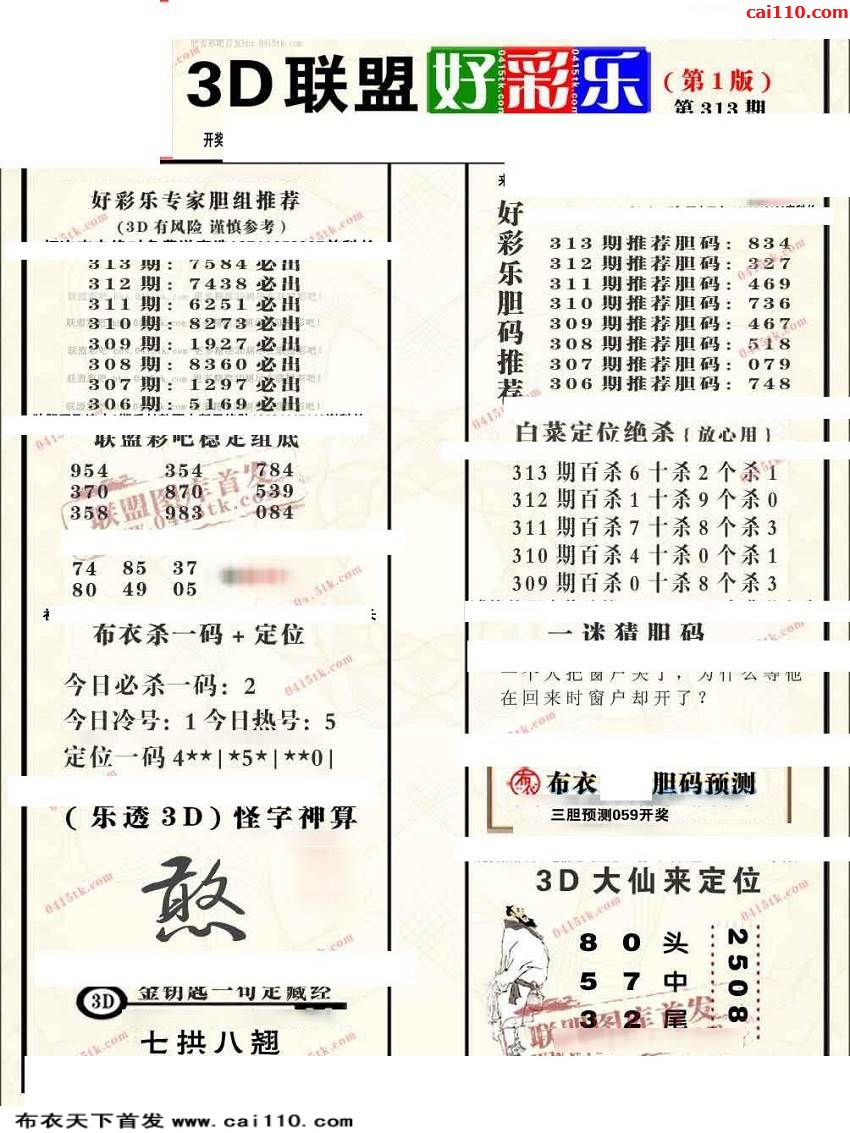 cai110.com
3D联盟好彩乐(第1版)
第313期
开奖
好彩乐专家胆组推荐
(3D有风险 谨慎参考)
313期:7584必出
312期:7438必出
311期:6251必出
310期:8273必出
309期:1927必出
308期:8360必出
307期:1297必出
306期:5169必出
联盟彩吧稳定组底
954 354 784
370 870 539
358 983 084
74 85 37
80 49 05
布衣杀一码+定位
今日必杀一码: 2
今日冷号: 1 今日热号: 5
定位一码 4**|*5*|**0|
(乐透3D)怪字神算
憨
3D 金钥匙一句定藏经
七拱八翘
好彩乐胆码推荐
313期推荐胆码: 834
312期推荐胆码: 327
311期推荐胆码: 469
310期推荐胆码: 736
309期推荐胆码: 467
308期推荐胆码: 518
307期推荐胆码: 079
306期推荐胆码: 748
白菜定位绝杀{放心用}
313期百杀6十杀2个杀1
312期百杀1十杀9个杀0
311期百杀7十杀8个杀3
310期百杀4十杀0个杀1
309期百杀0十杀8个杀3
一迷猜胆码
一个人把窗户关了，为什么等他
在回来时窗户却开了?
布衣 胆码预测
三胆预测059开奖
3D大仙来定位
8 0 头
5 7 中
3 2 尾
2508
联盟图库首发
0415tk.com
布衣天下首发 www.cai110.com